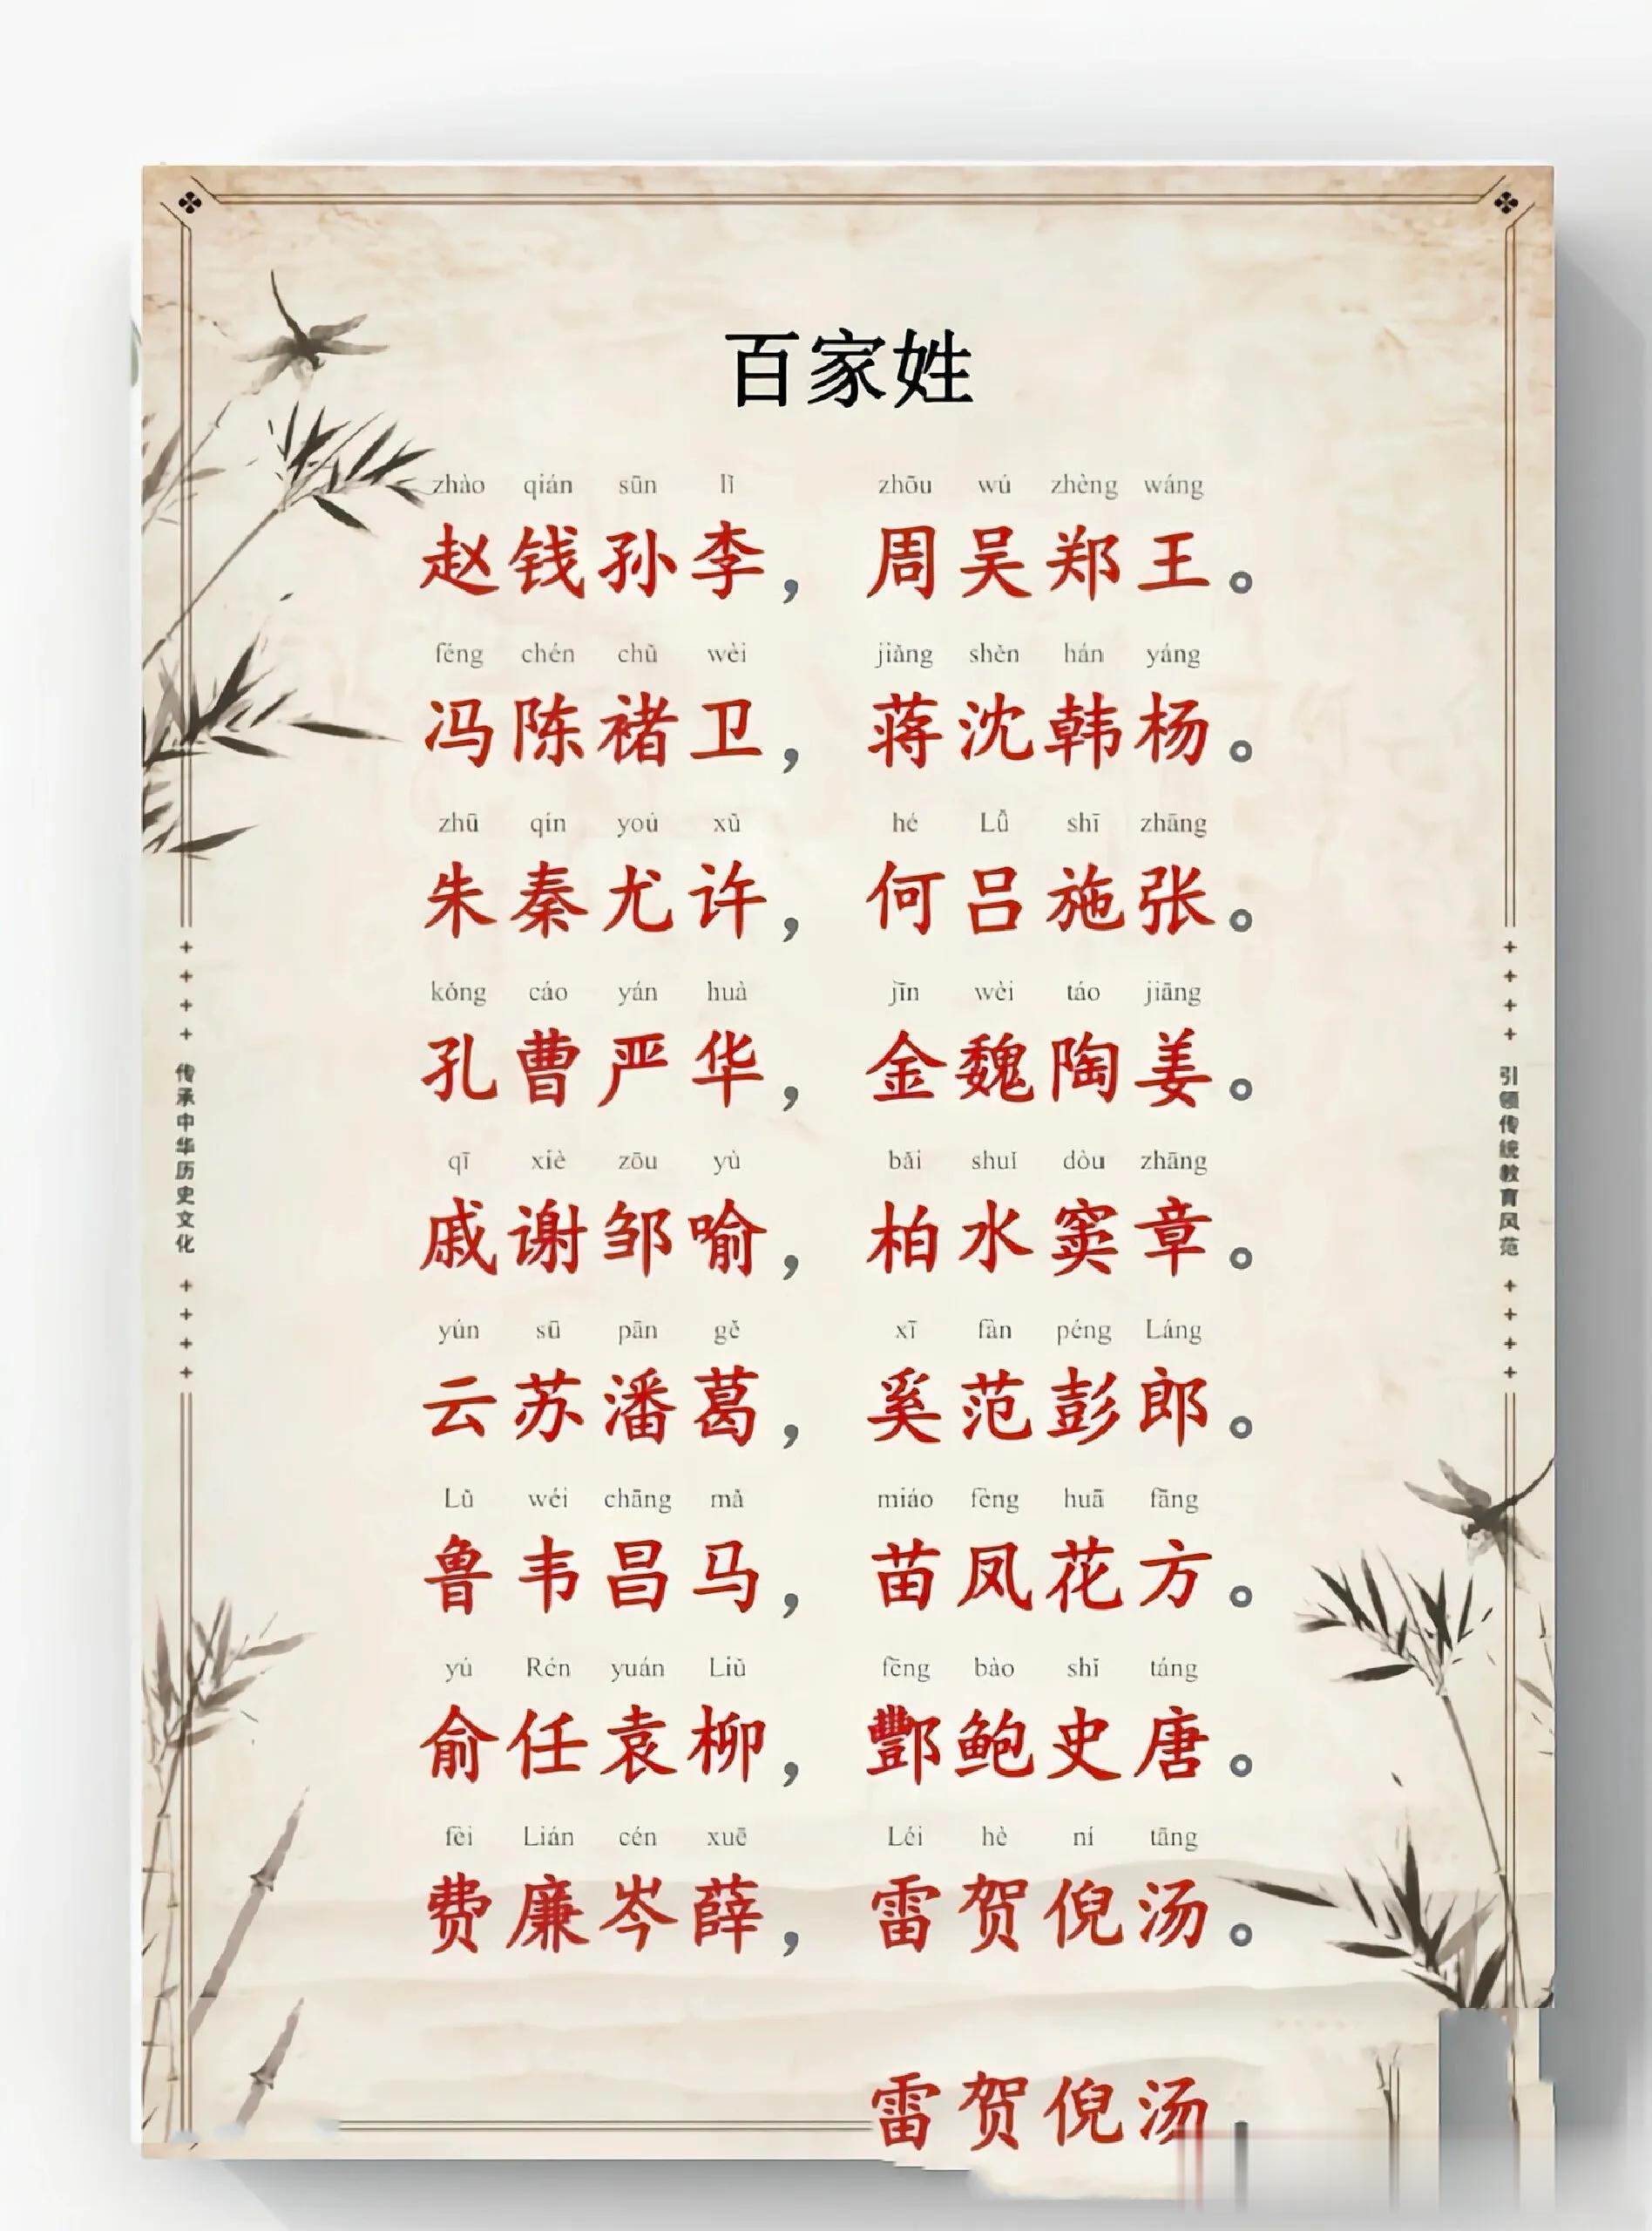 百家姓
zhào qián sūn lǐ zhōu wú zhèng wáng
赵钱孙李，周吴郑王。
féng chén chǔ wèi jiǎng shěn hán yáng
冯陈褚卫，蒋沈韩杨。
zhū qín yoú xǔ hé Lǚ shī zhāng
朱秦尤许，何吕施张。
kǒng cáo yán huà jīn wèi táo jiāng
孔曹严华，金魏陶姜。
qī xiè zōu yù bǎi shuǐ dòu zhāng
戚谢邹喻，柏水窦章。
yún sū pān gě xī fàn péng Láng
云苏潘葛，奚范彭郎。
Lǔ wéi chāng mǎ miáo fèng huā fāng
鲁韦昌马，苗凤花方。
yú Rén yuán Liǔ fēng bào shǐ táng
俞任袁柳，酆鲍史唐。
fèi Lián cén xuē Léi hè ní tāng
费廉岑薛，雷贺倪汤。
雷贺倪汤
传承中华历史文化
引领传统教育风范